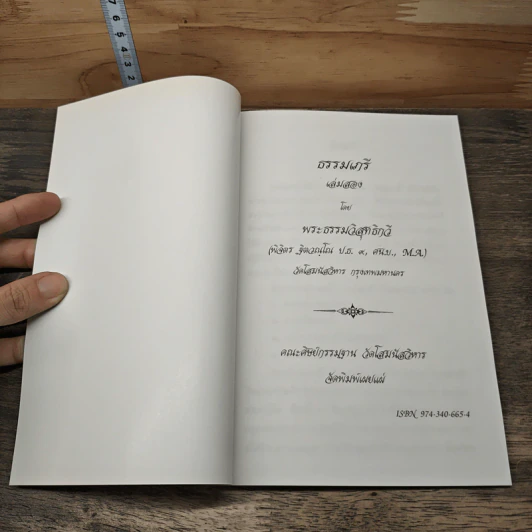 7 6 5 4 3 2
ธรรมเภรี
เล่มสอง
โดย
พระธรรมวิสุทธิกวี
(พิจิตร ฐิตวณฺโณ ป.ธ. ๙, ศน.บ., M.A.)
วัดโสมนัสวิหาร กรุงเทพมหานคร
คณะศิษย์กรรมฐาน วัดโสมนัสวิหาร
จัดพิมพ์เผยแผ่
ISBN 974-340-665-4